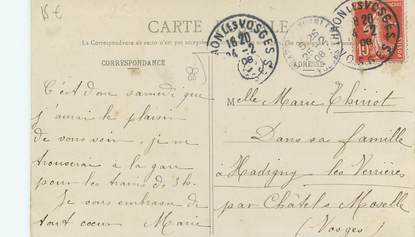 15 €
CARTE
La Correspondance
CORRESPONDANCE
ADRESSE
AON LES VOSGES
16 20
-2
08
C'est donc samedi que
j'aurai le plaisir
de vous voir. je me
trouverai à la gare
pour les trains de 3h.
Je vous embrasse de
tout cœur Marie
Melle Marie Thiriot
Dans sa famille
à Hadigny les Verrières
par Châtel s Moselle
(Vosges)